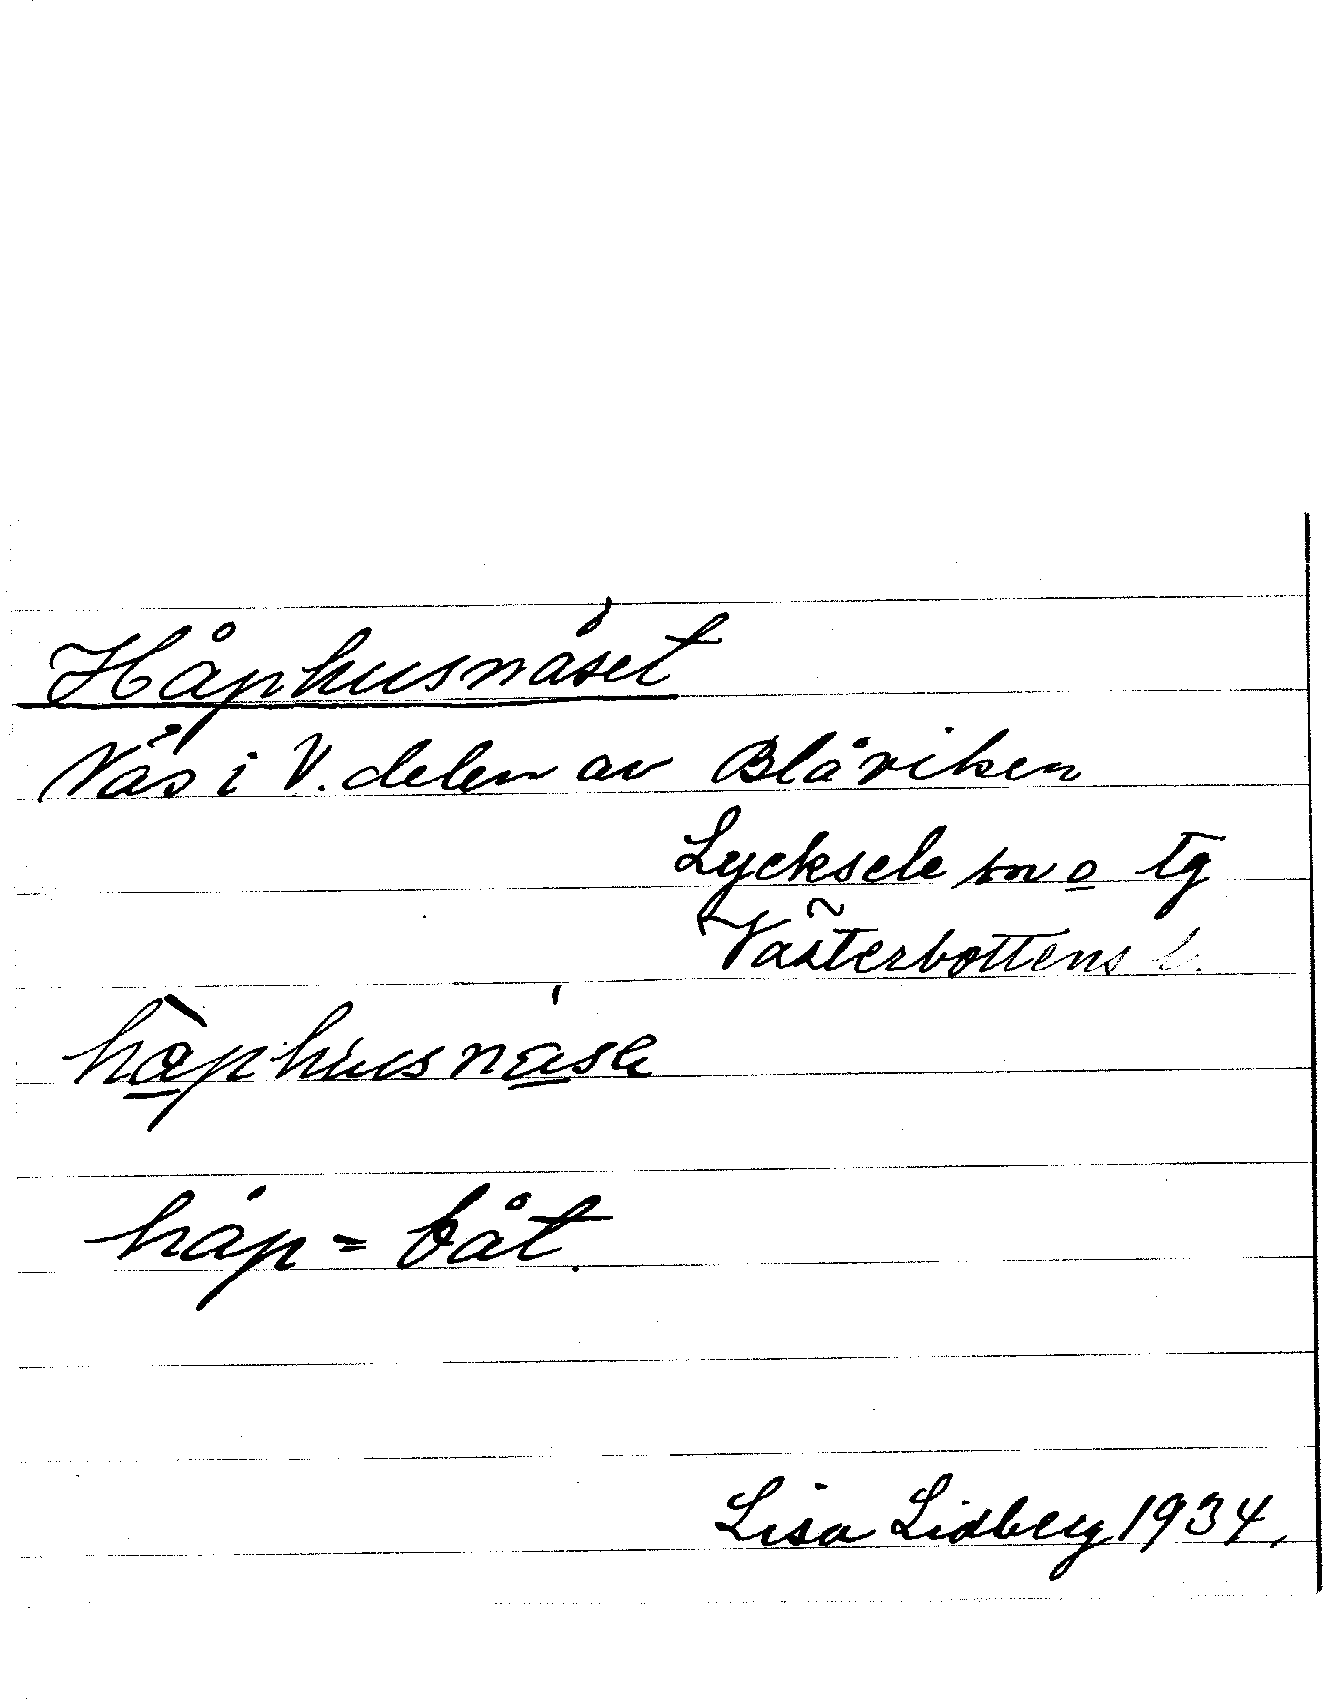 Håphusnäset
Näs i V. delen av Blåviken
Lycksele sn o tg
Västerbottens l.
håphusnäse
håp = båt.
Lisa Lidberg 1934.